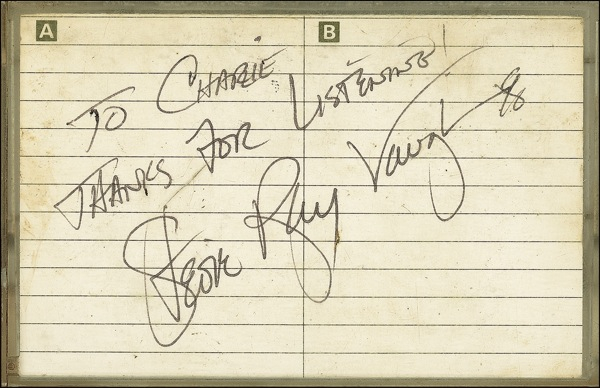 A B
TO CHARIE
THANKS FOR LISTENING!
Stevie Ray Vaughan 90